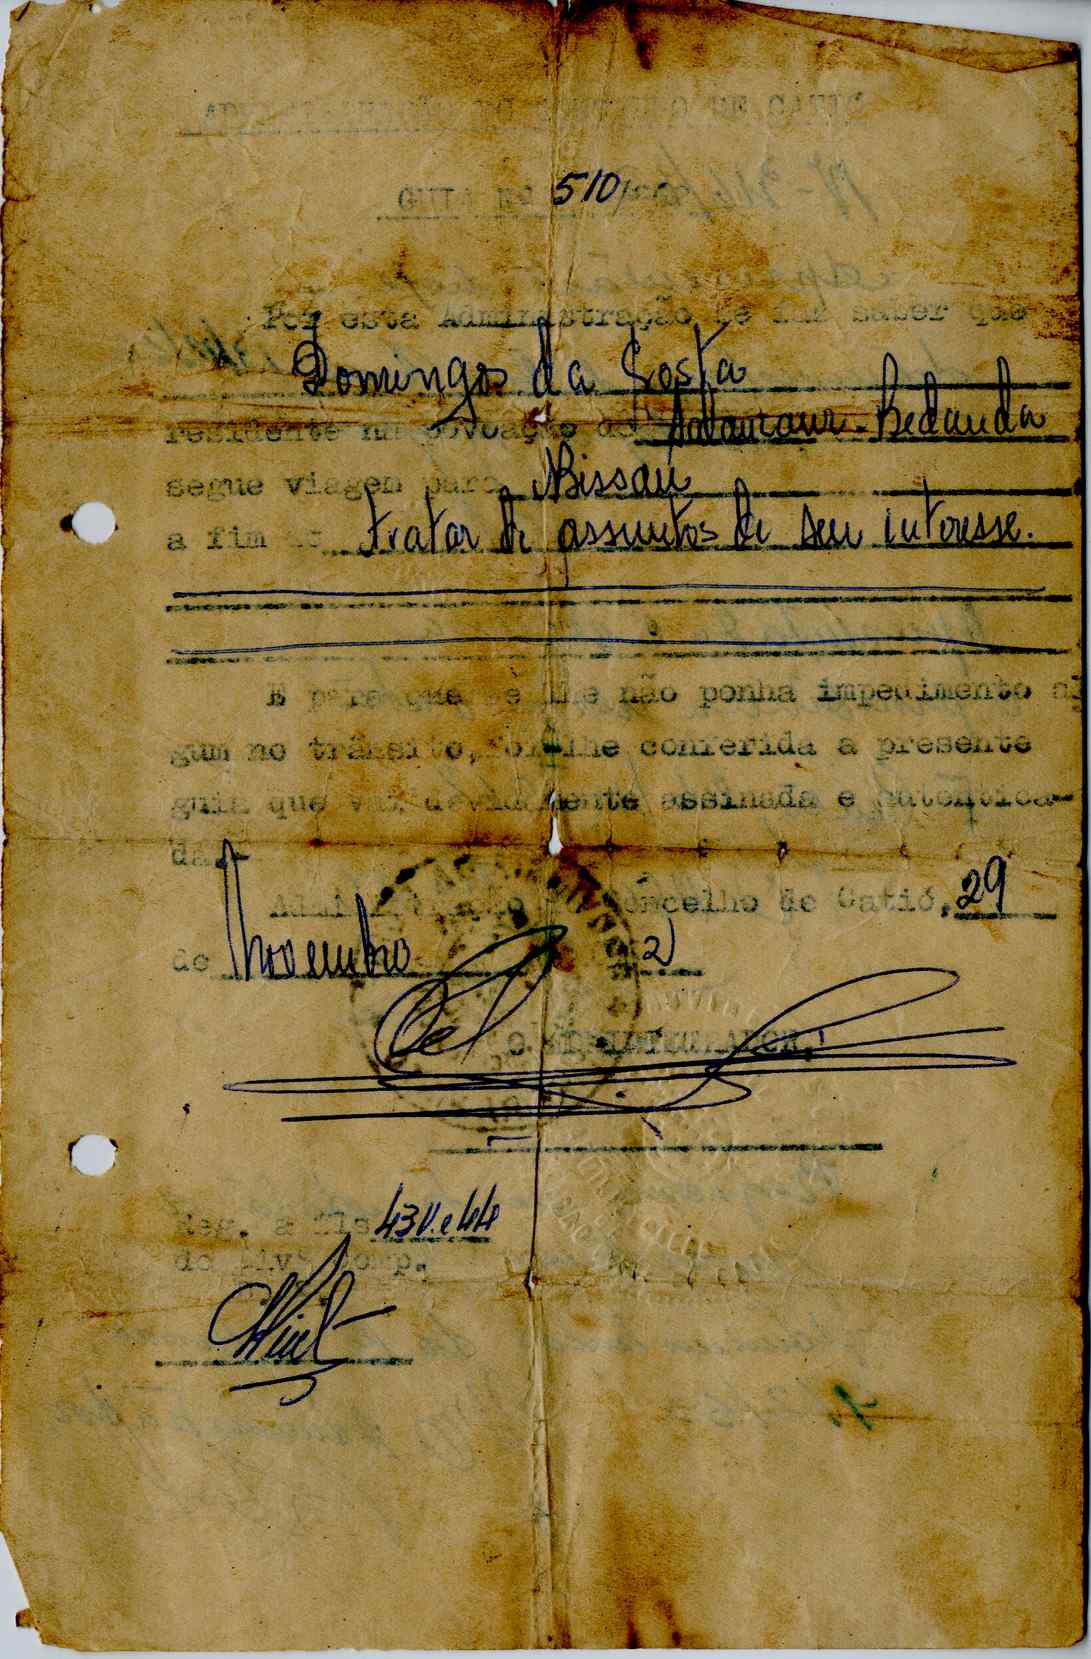 GUIA Nº 510
Por esta Administração se faz saber que
Domingos da Costa
residente na povoação de - Bedanda
segue viagem para Bissau
a fim de tratar de assuntos de seu interesse.
E para que se lhe não ponha impedimento al
gum no trânsito, foi-lhe conferida a presente
guia que vai devidamente assinada e autentica-
da.-
Administração do Concelho de Catió, 29
de Novembro
O ADMINISTRADOR,
Reg. a fls 43 V. e 44
do Liv. comp.